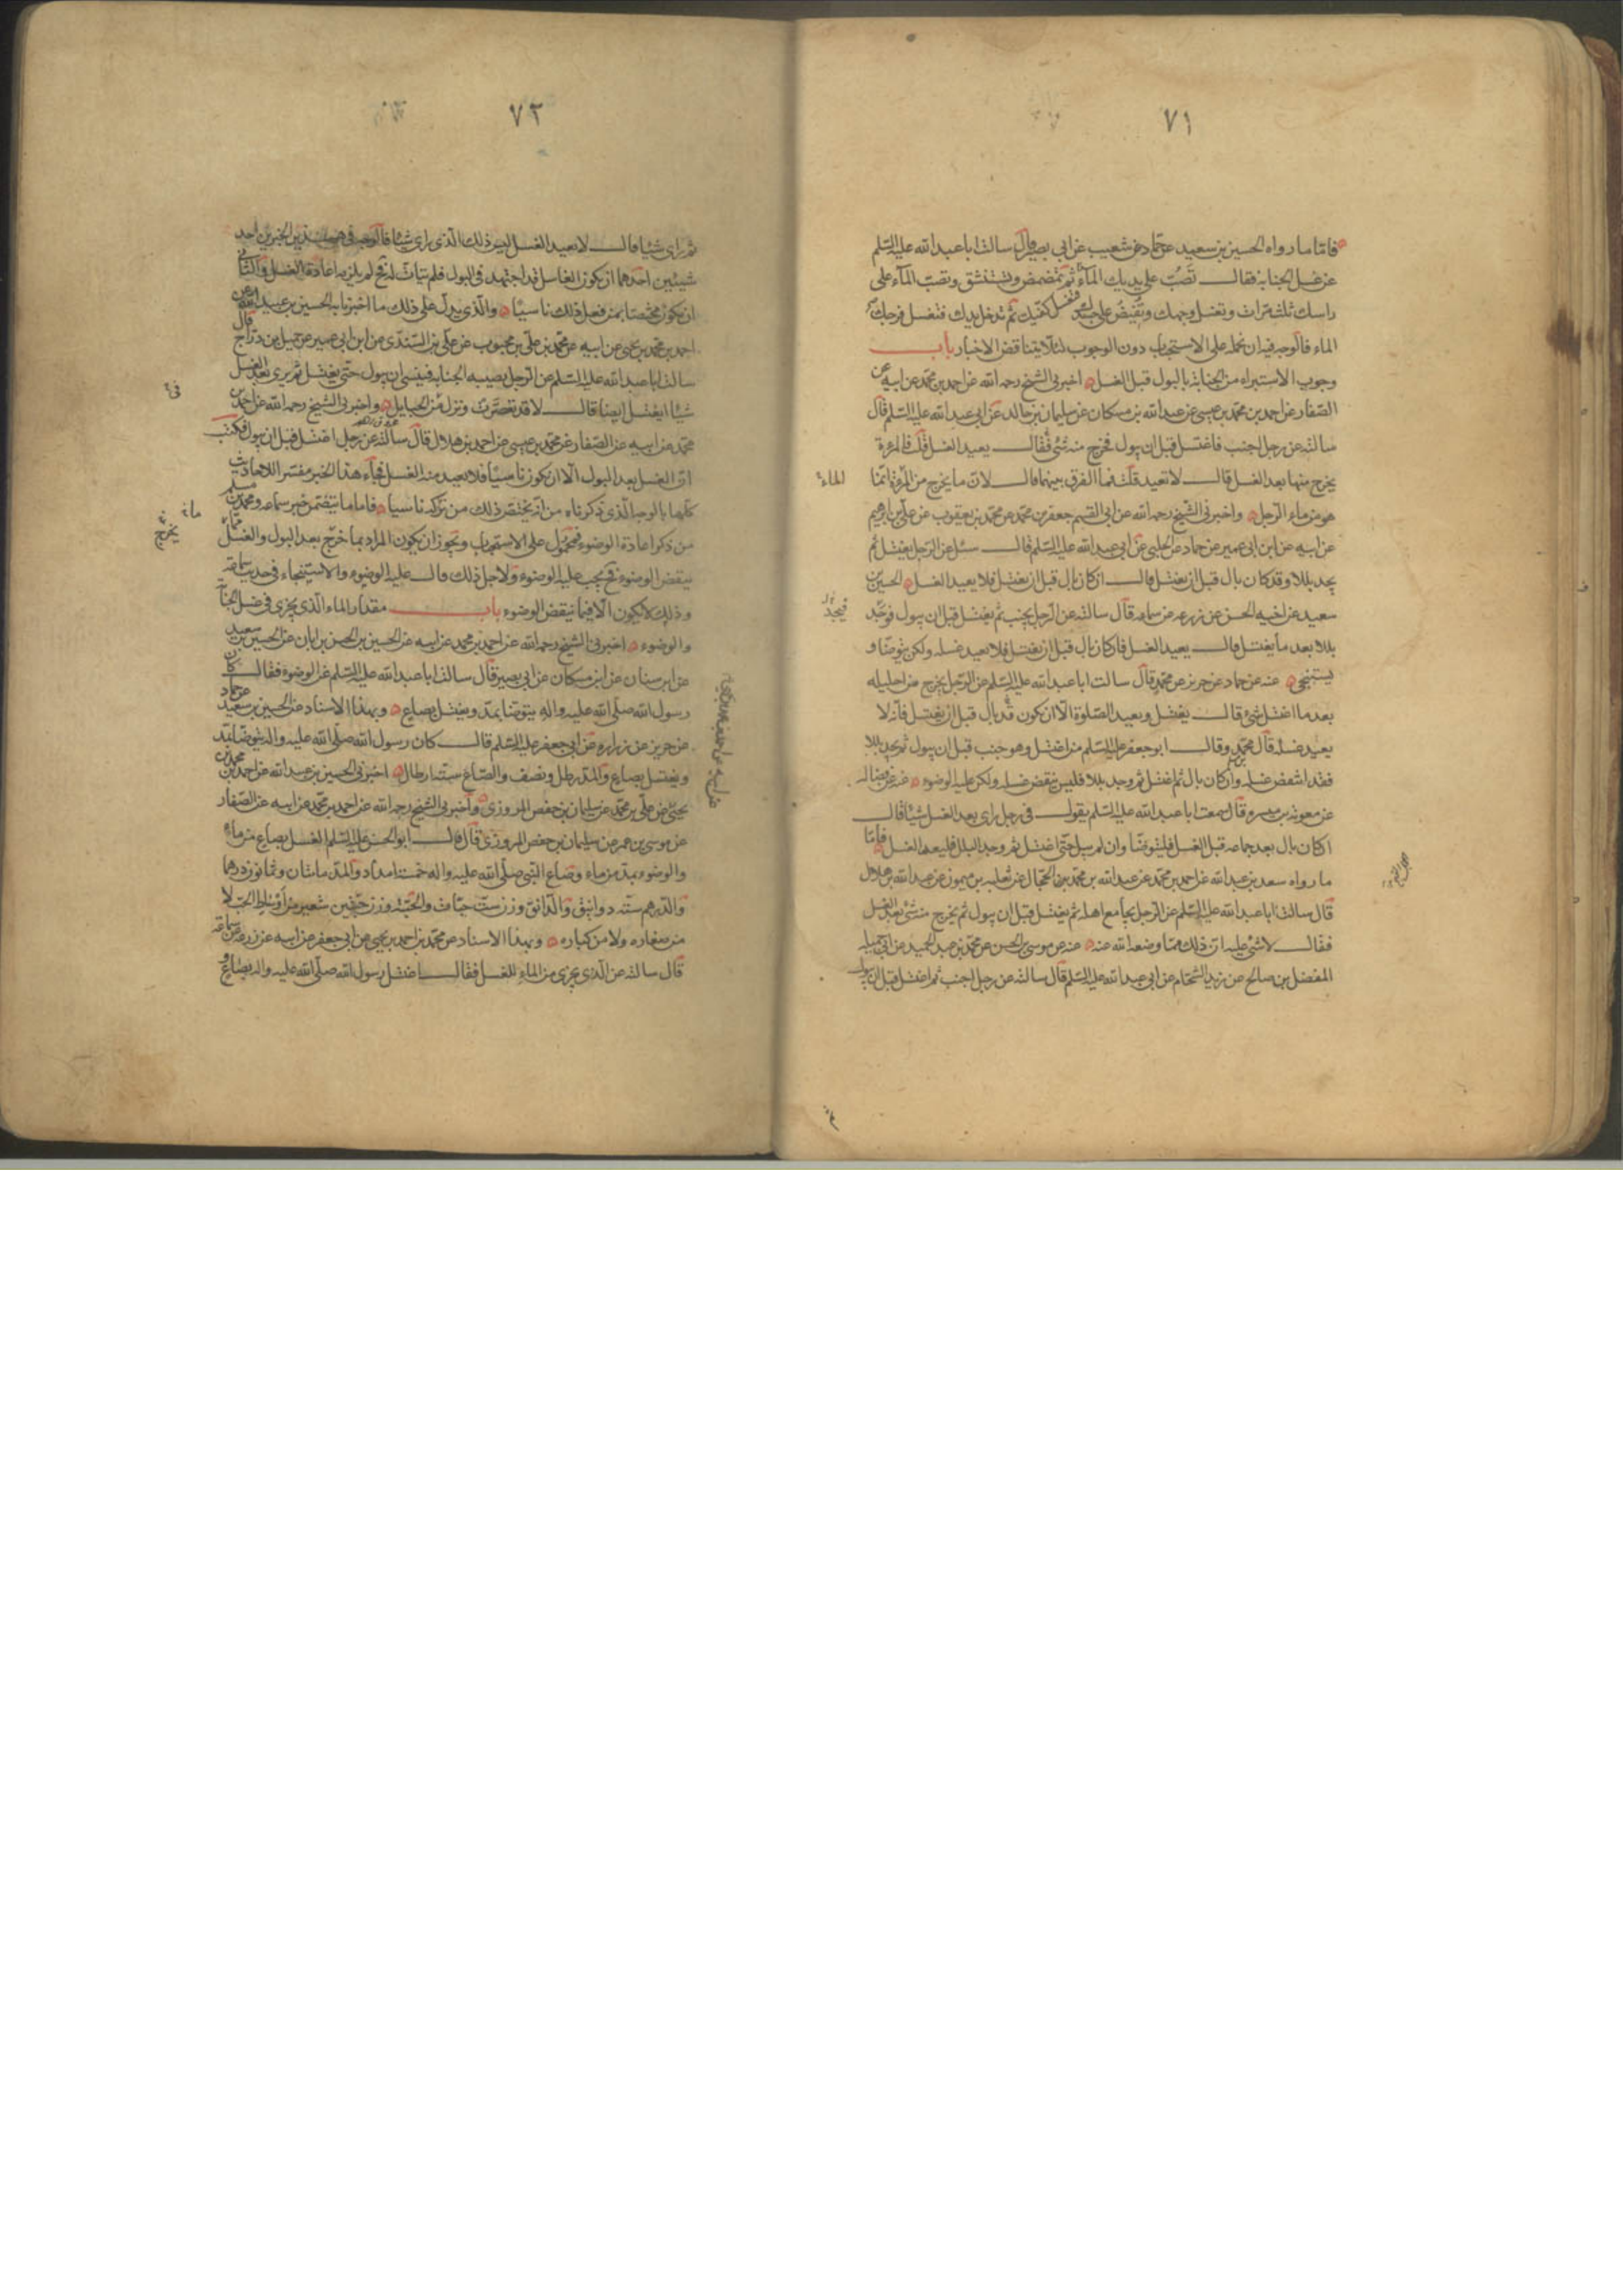 ٧١
فاما ما رواه الحسين بن سعيد عن حماد عن شعيب عن ابي بصير قال سالت ابا عبد الله عليه السلم
عن غسل الجنابة فقال تصب على يديك الماء ثم تمضمض وتستنشق وتصب الماء على
راسك ثلث مرات وتغسل وجهك وتفيض على جسدك كفيك ثم تدخل يدك فتغسل فرجك
الماء فالوجه فيه ان نحمله على الاستحباب دون الوجوب لئلا يتناقض الاخبار باب
وجوب الاستبراء من الجنابة بالبول قبل الغسل اخبرني الشيخ رحمه الله عن احمد بن محمد عن ابيه عن
الصفار عن احمد بن محمد بن عيسى عن عبد الله بن مسكان عن سليمان بن خالد عن ابي عبد الله عليه السلم قال
سالته عن رجل اجنب فاغتسل قبل ان يبول فخرج منه شئ فقال يعيد الغسل قلت فالمرءة
يخرج منها بعد الغسل قال لا تعيد قلت فما الفرق بينهما قال لان ما يخرج من المرءة انما
هو من ماء الرجل واخبرني الشيخ رحمه الله عن ابي القسم جعفر بن محمد عن محمد بن يعقوب عن علي بن ابرهيم
عن ابيه عن ابن ابي عمير عن حماد عن الحلبي عن ابي عبد الله عليه السلم قال سئل عن الرجل يغتسل ثم
يجد بللا وقد كان بال قبل ان يغتسل قال ان كان بال قبل ان يغتسل فلا يعيد الغسل الحسين بن
سعيد عن اخيه الحسن عن زرعه عن سماعه قال سالته عن الرجل يجنب ثم يغتسل قبل ان يبول فوجد
بللا بعد ما يغتسل قال يعيد الغسل فان كان بال قبل ان يغتسل فلا يعيد غسله ولكن يتوضا و
يستنجي عنه عن حماد عن حريز عن محمد قال سالت ابا عبد الله عليه السلم عن الرجل يخرج من احليله
بعد ما اغتسل شئ قال يغتسل ويعيد الصلوة الا ان يكون قد بال قبل ان يغتسل فانه لا
يعيد غسله قال محمد وقال ابو جعفر عليه السلم من اغتسل وهو جنب قبل ان يبول ثم يجد بللا
فقد انتقض غسله وان كان بال ثم اغتسل ثم وجد بللا فليس ينقض غسله ولكن عليه الوضوء عنه عن فضاله
عن معوية بن ميسره قال سمعت ابا عبد الله عليه السلم يقول في رجل راى بعد الغسل شيئا قال
ان كان بال بعد جماعه قبل الغسل فليتوضا وان لم يبل حتى اغتسل ثم وجد البلل فليعد الغسل فاما
ما رواه سعد بن عبد الله عن احمد بن محمد عن عبد الله بن محمد الحجال عن ثعلبه بن ميمون عن عبد الله بن هلال
قال سالت ابا عبد الله عليه السلم عن الرجل يجامع اهله ثم يغتسل قبل ان يبول ثم يخرج منه شئ بعد الغسل
فقال لا شئ عليه ان ذلك مما وضعه الله عنه عنه عن موسى بن الحسن عن محمد بن عبد الحميد عن ابي جميله
المفضل بن صالح عن زيد الشحام عن ابي عبد الله عليه السلم قال سالته عن رجل اجنب ثم اغتسل قبل ان يبول
الماء
فيجد
٧٢
ثم راى شيئا قال لا يعيد الغسل ليس ذلك الذي راى شيئا فالوجه في هذين الخبرين احد
شيئين احدهما ان يكون الغاسل قد اجتهد في البول فلم يتات له فح لم يلزمه اعادة الغسل والثاني
ان يكون مختصا بمن فعل ذلك ناسيا والذي يدل على ذلك ما اخبرنا به الحسين بن عبيد الله عن
احمد بن محمد بن يحيى عن ابيه عن محمد بن علي بن محبوب عن علي بن السندي عن ابن ابي عمير عن جميل بن دراج قال
سالت ابا عبد الله عليه السلم عن الرجل يصيبه الجنابه فينسى ان يبول حتى يغتسل ثم يرى بعد الغسل
شيئا ايغتسل ايضا قال لا قد تعصرت ونزل من الحبايل واخبرني الشيخ رحمه الله عن احمد بن
محمد عن ابيه عن الصفار عن محمد بن عيسى عن احمد بن هلال قال سالته عن رجل اغتسل قبل ان يبول فكتب
ان الغسل بعد البول الا ان يكون ناسيا فلا يعيد منه الغسل فجاء هذا الخبر مفسرا للاحاديث
كلها بالوجه الذي ذكرناه من انه يختص ذلك من تركه ناسيا فاما ما يتضمن خبر سماعه ومحمد بن مسلم
من ذكر اعادة الوضوء فمحمول على الاستحباب ويجوز ان يكون المراد بما خرج بعد البول والغسل مما
ينقض الوضوء فح يجب عليه الوضوء ولاجل ذلك قال عليه الوضوء والاستنجاء في حديث سماعه
وذلك لا يكون الا فيما ينقض الوضوء باب مقدار الماء الذي يجزي في غسل الجنابة
والوضوء اخبرني الشيخ رحمه الله عن احمد بن محمد عن ابيه عن الحسين بن الحسن بن ابان عن الحسين بن سعيد
عن ابن سنان عن ابن مسكان عن ابي بصير قال سالت ابا عبد الله عليه السلم عن الوضوء فقال كان
رسول الله صلى الله عليه واله يتوضا بمد ويغتسل بصاع وبهذا الاسناد عن الحسين بن سعيد عن حماد
عن حريز عن زراره عن ابي جعفر عليه السلم قال كان رسول الله صلى الله عليه واله يتوضا بمد
ويغتسل بصاع والمد رطل ونصف والصاع ستة ارطال اخبرني الحسين بن عبيد الله عن احمد بن محمد بن
يحيى عن علي بن محمد عن سليمان بن حفص المروزي واخبرني الشيخ رحمه الله عن احمد بن محمد عن ابيه عن الصفار
عن موسى بن عمر عن سليمان بن حفص المروزي قال قال ابو الحسن عليه السلم الغسل بصاع من ماء
والوضوء بمد من ماء وصاع النبي صلى الله عليه واله خمسة امداد والمد مائتان وثمانون درهما
والدرهم ستة دوانيق والدانق وزن ست حبات والحبة وزن حبتين شعير من اوساط الحب لا
من صغاره ولا من كباره وبهذا الاسناد عن محمد بن احمد بن يحيى عن ابي جعفر عن ابيه عن زرعه عن سماعه
قال سالته عن الذي يجزي من الماء للغسل فقال اغتسل رسول الله صلى الله عليه واله بصاع و
يخرج